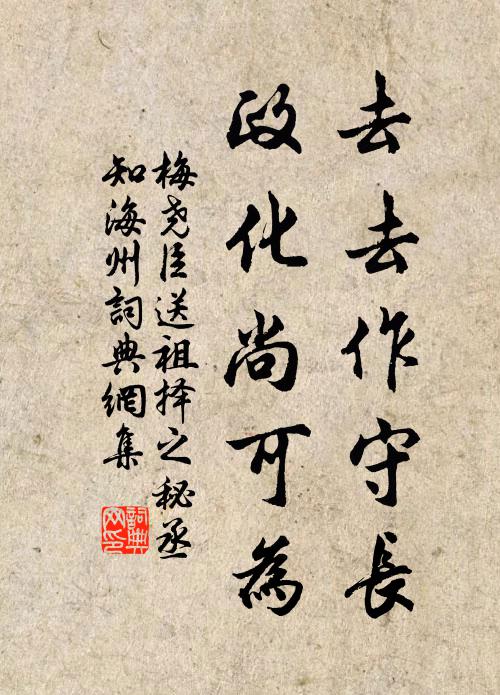 去去作守長
政化尚可為
梅尧臣送祖择之秘丞
知海州詞典網集
詞典
网印